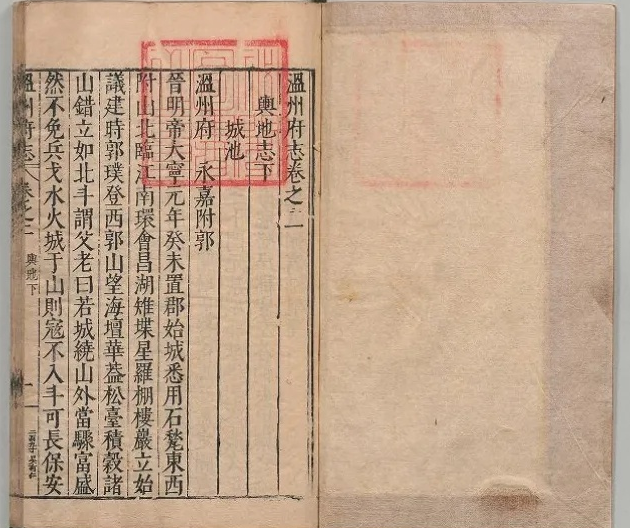 溫州府志卷之二
輿地志下
城池
溫州府 永嘉附郭
晉明帝大寧元年癸未置郡始城悉用石甃東西
附山北臨江南環會昌湖雉堞星羅棚樓巖立始
議建時郭璞登西郭山望海壇華葢松臺積穀諸
山錯立如北斗謂父老曰若城繞山外當驟富盛
然不免兵戈水火城于山則寇不入斗可長保安
溫州府志 卷之二
輿地下